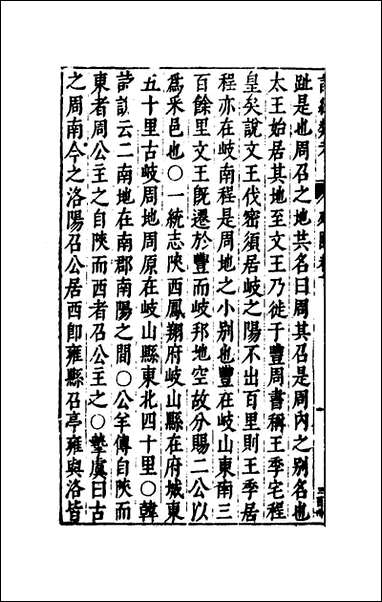 趾是也周召之地其名曰周其召是周內之别名也
太王始居其地至文王乃徙于豐周書稱王季宅程
皇矣說文王伐密須居岐之陽不出百里則王季居
程亦在岐南程是周地之小别也豐在岐山東南三
百餘里文王旣遷於豐而岐邦地空故分賜二公以
爲采邑也○一統志陜西鳳翔府岐山縣在府城東
五十里古岐周地周原在岐山縣東北四十里○韓
詩說云二南地在南郡南陽之間○公羊傳自陜而
東者周公主之自陜而西者召公主之○摯虞曰古
之周南今之洛陽召公居西卽雍縣召亭雍與洛皆